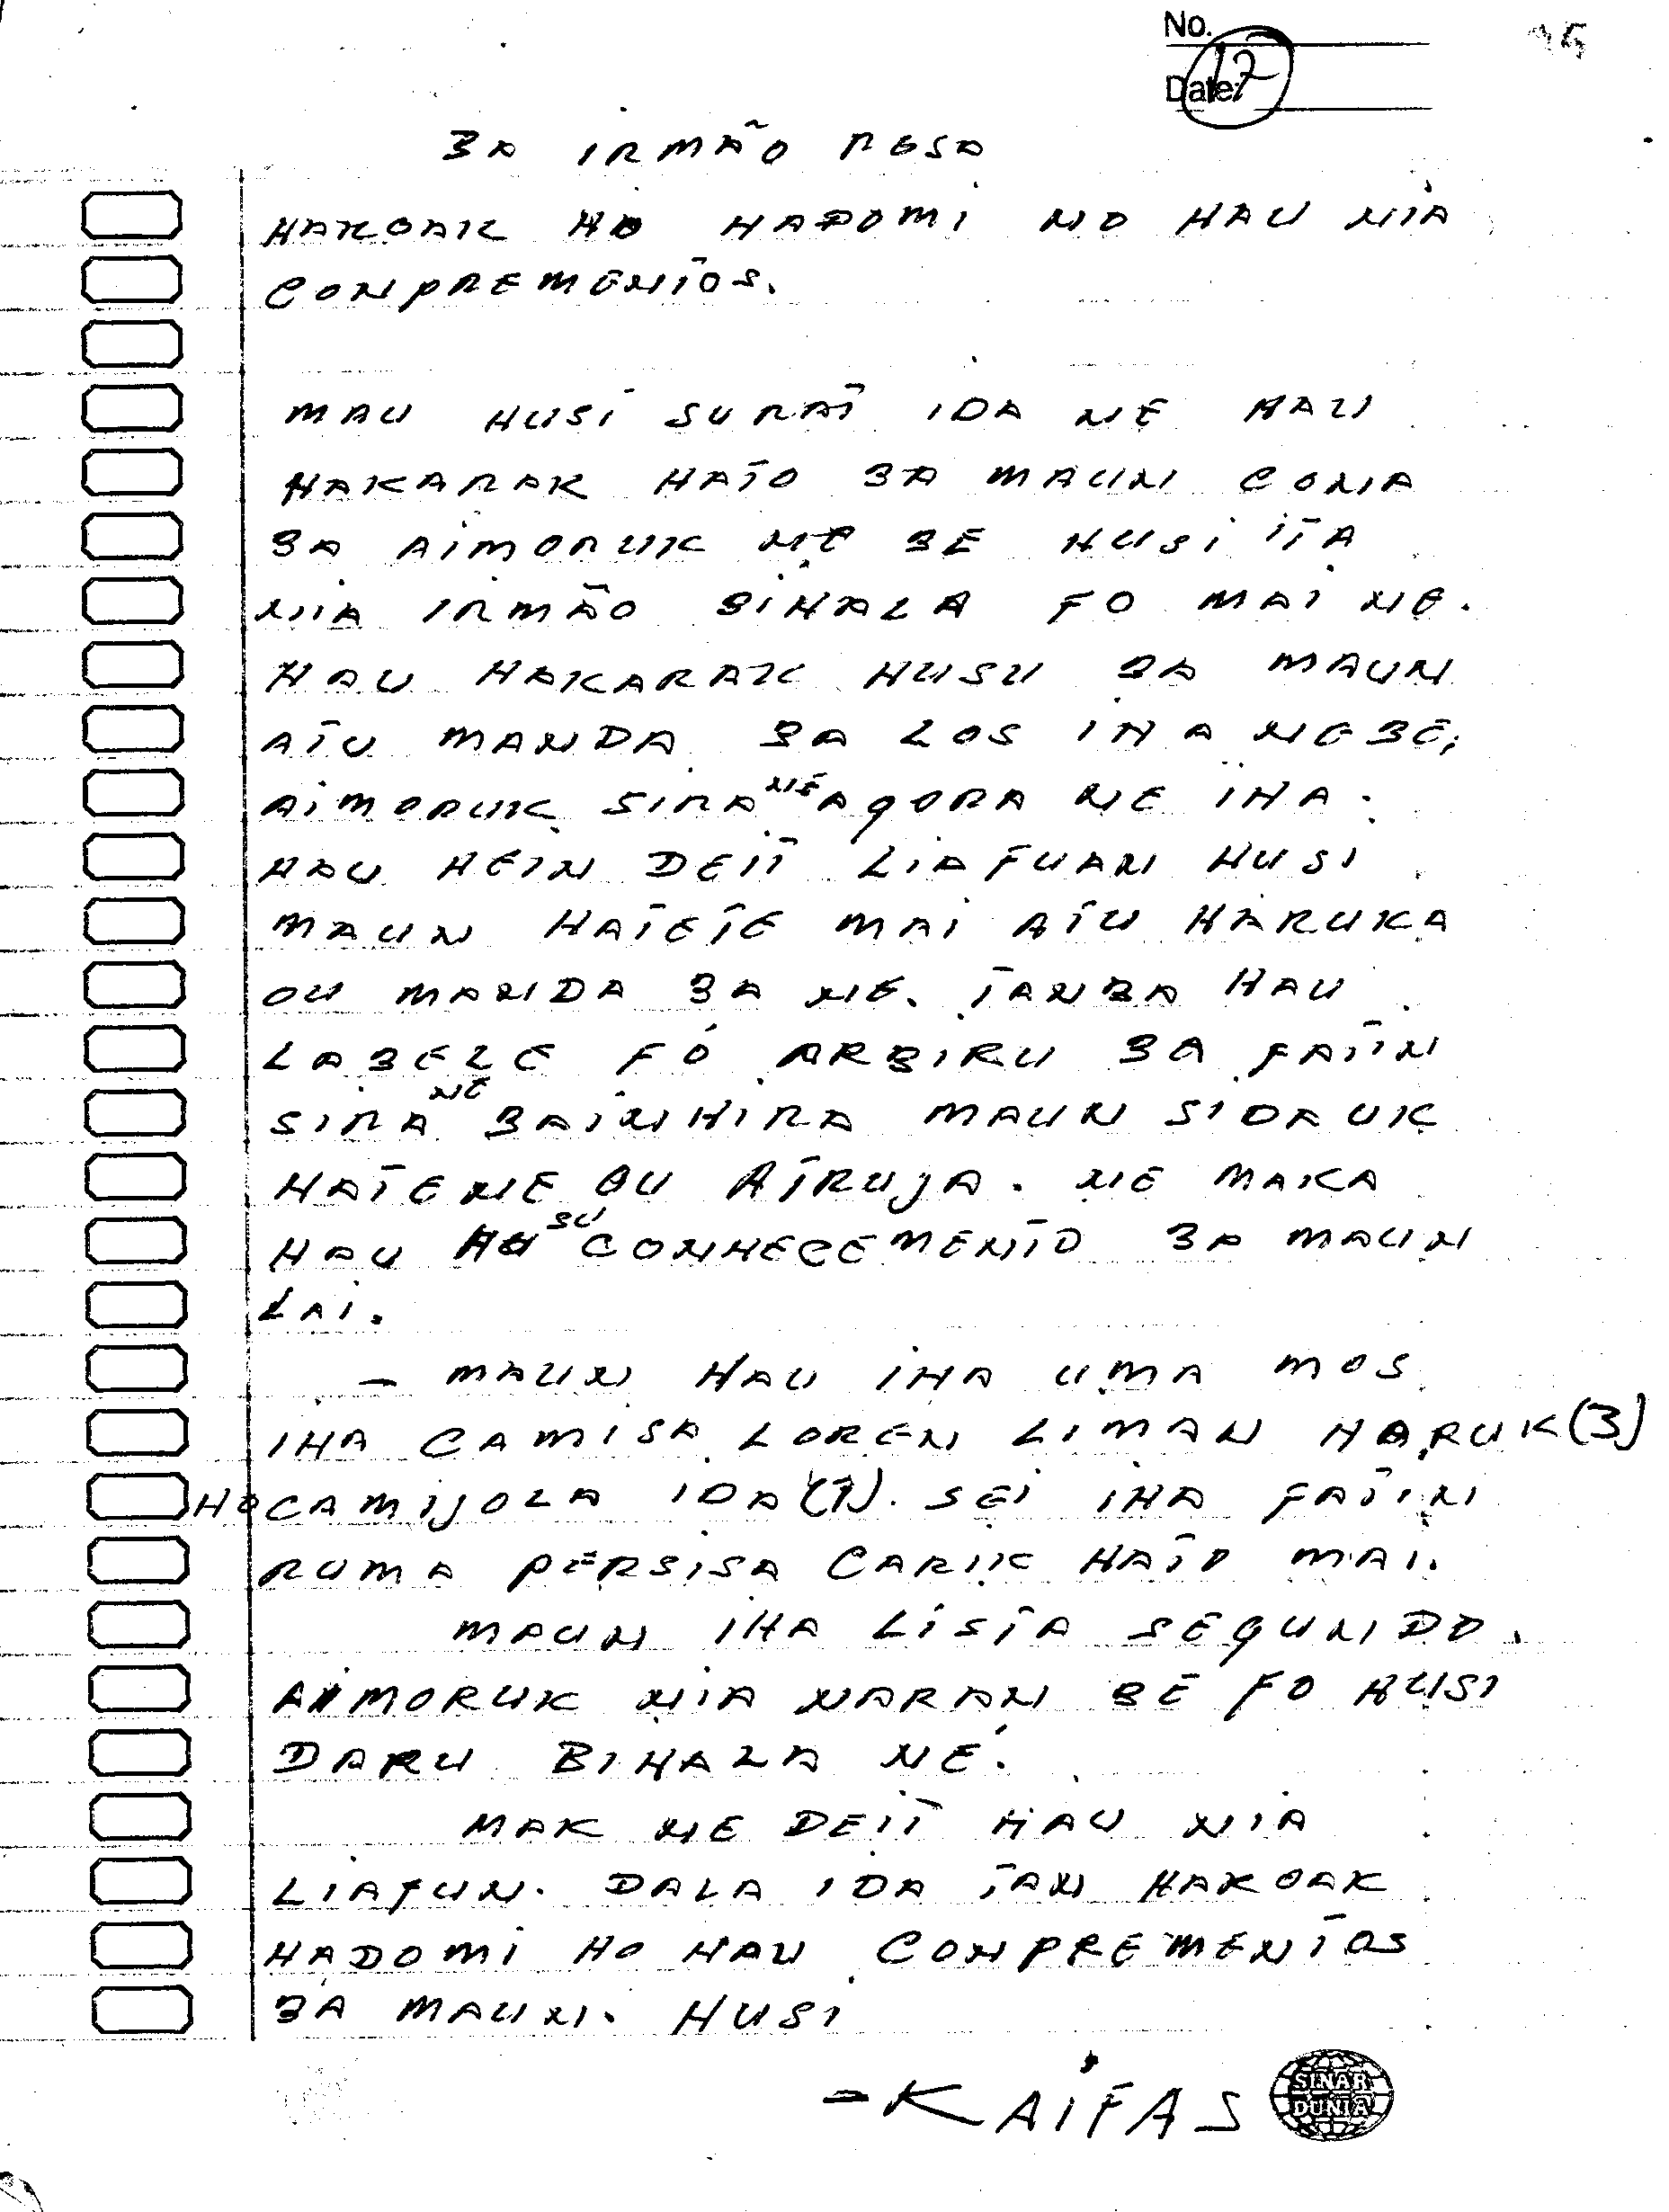 No.
Date: 12
BA IRMÃO ROSA
HAKOAK HO HADOMI NO HAU NIA
CONPREMENTOS.
MAU HUSI SURAT IDA NE HAU
HAKARAK HATO BA MAUN CONA
BA AIMORUK NE BE HUSI ITA
NIA IRMÃO BIHALA FO MAI NE.
HAU HAKARAK HUSU BA MAUN
ATU MANDA BA LOS IHA NEBE,
AIMORUK SIRA NÉ AGORA NE IHA.
HAU HEIN DEIT LIAFUAN HUSI
MAUN HATETE MAI ATU HARUKA
OU MANDA BA NE. TANBA HAU
LABELE FÓ ARBIRU BA FATIN
SIRA NE BAINHIRA MAUN SIDAUK
HATENE OU ATRUJA. NE MAKA
HAU HUSU CONHECEMENTO BA MAUN
LAI.
- MAUN HAU IHA UMA MOS
IHA CAMISA LOREN LIMAN NARUK (3)
HO CAMIJOLA IDA (1). SEI IHA FATIN
RUMA PERSISA CARIK HATO MAI.
MAUN IHA LISTA SEGUNDO.
AIMORUK NIA NARAN BE FO HUSI
DARU BIHALA NE.
MAK NE DEIT HAU NIA
LIAFUN. DALA IDA TAN HAKOAK
HADOMI HO HAU CONPREMENTOS
BA MAUN. HUSI
- KAIFAS
SINAR
DUNIA